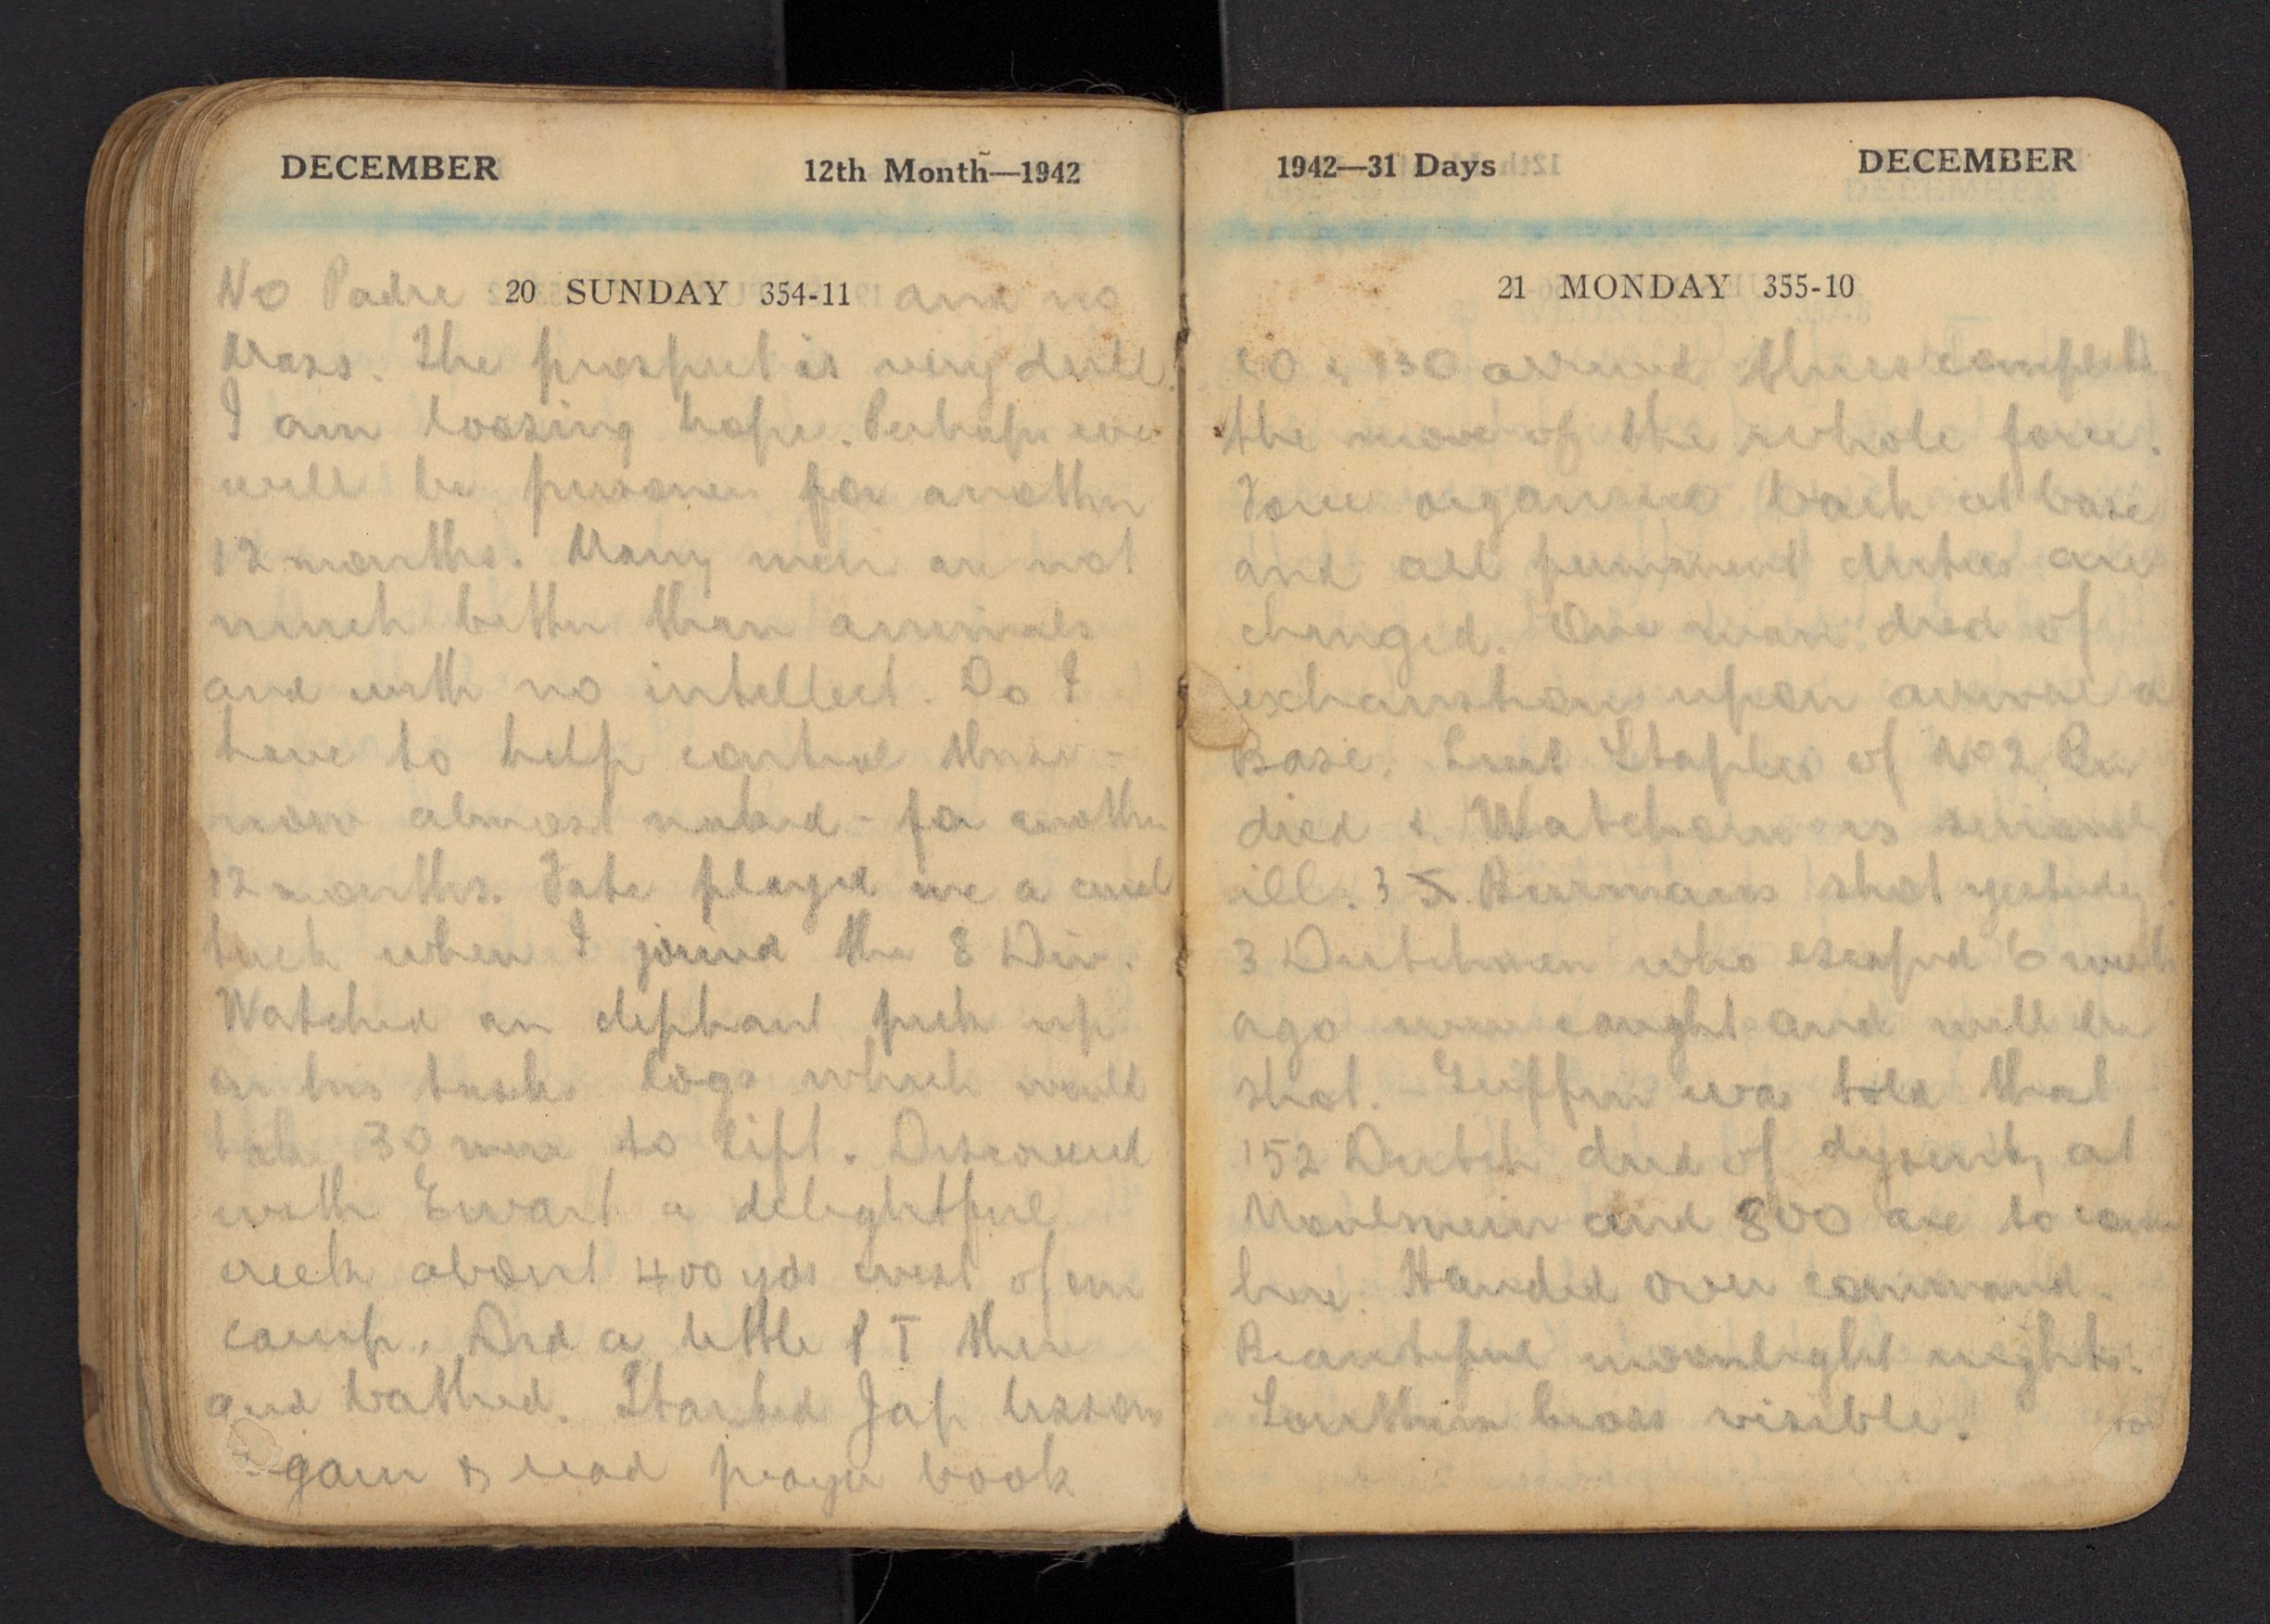 DECEMBER 12th Month—1942
20 SUNDAY 354-11
No Padre and no
Mass. The prospect is very dull.
I am loosing hope. Perhaps we
will be prisoners for another
12 months. Many men are not
much better than animals
and with no intellect. Do I
have to help control these -
now almost naked - for another
12 months. Fate played me a cruel
trick when I joined the 8 Div.
Watched an elephant pick up
on his tusks logs which would
take 30 men to lift. Discovered
with Ewart a delightful
creek about 400 yds west of our
camp. Did a little P T there
and bathed. Started Jap lessons
again & read prayer book
1942—31 Days DECEMBER
21 MONDAY 355-10
CO & 130 arrived thus completing
the move of the whole force.
Force organised back at base
and all permanent duties are
changed. One man died of
exhaustion upon arrival at
Base. Lieut Staples of No 2 Bn
died & Watchorn is seriously
ill. 3 Burmans shot yesterday.
3 Dutchmen who escaped 6 weeks
ago were caught and will be
shot. - Griffin was told that
152 Dutch died of dysentry at
Moulmein and 800 are to come
here. Handed over command.
Beautiful moonlight nights.
Southern Cross visible.